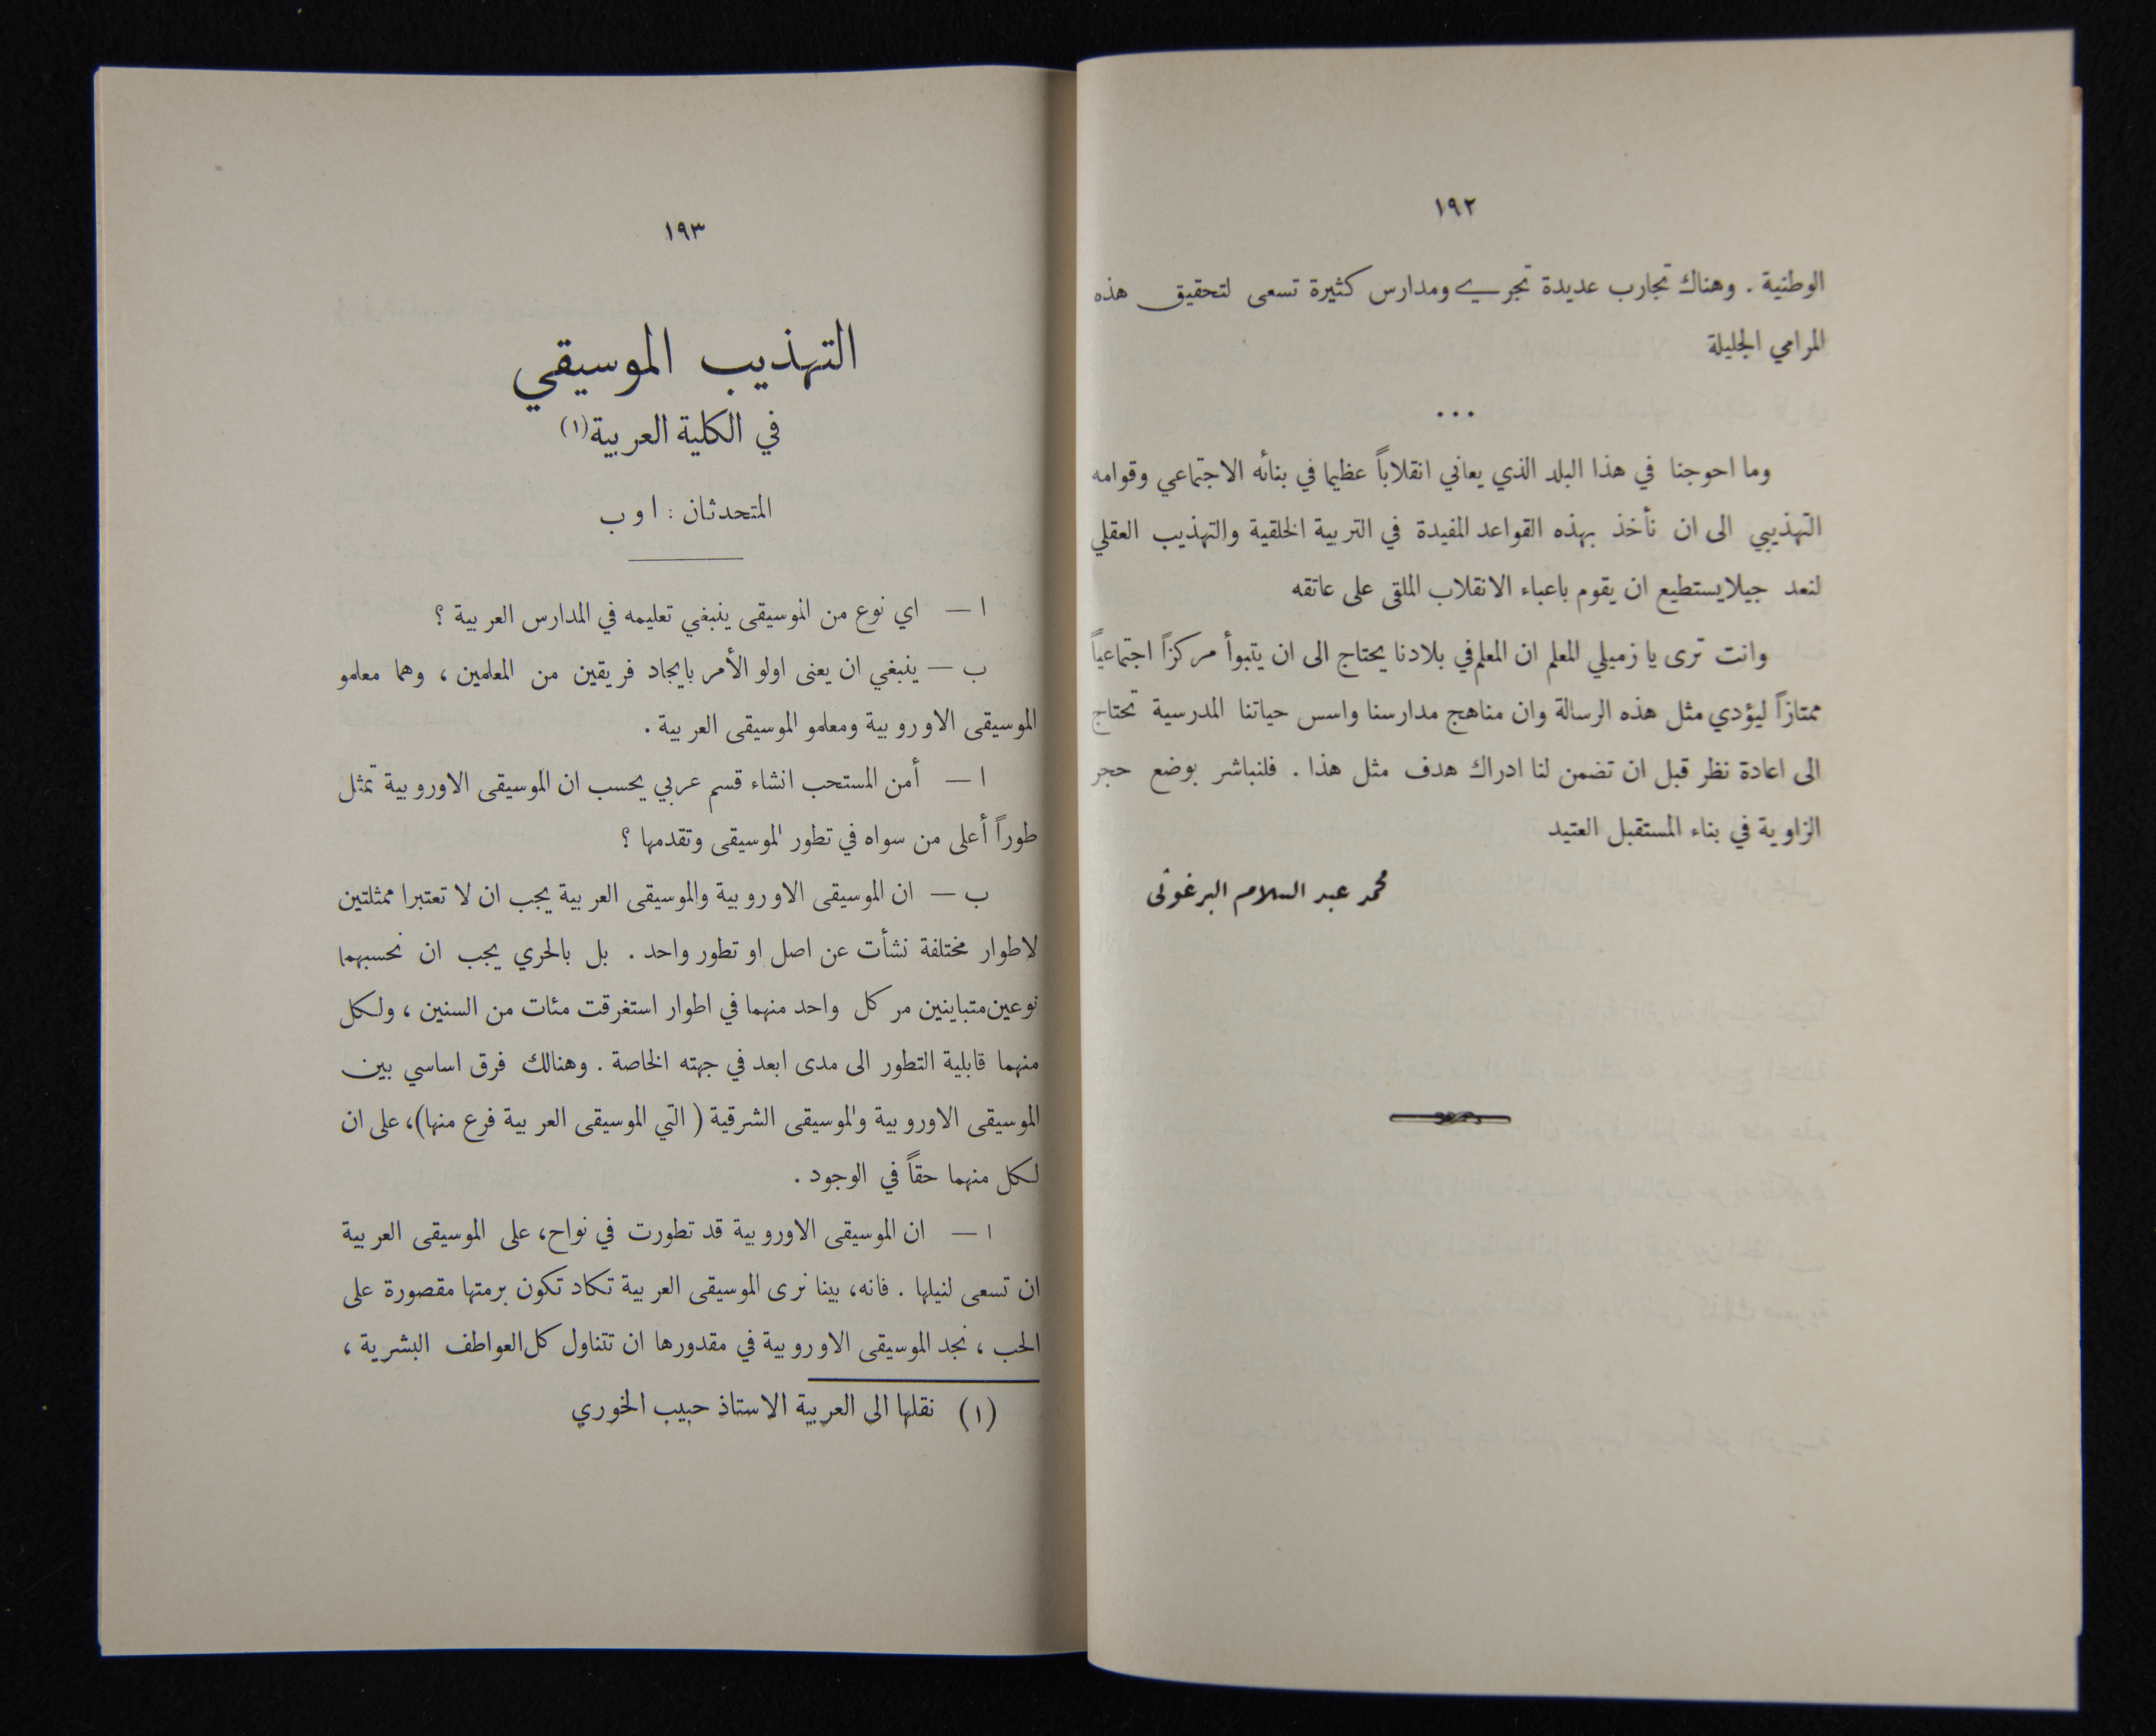 ١٩٢
الوطنية . وهناك تجارب عديدة تجري ومدارس كثيرة تسعى لتحقيق هذه
المرامي الجليلة
...
وما احوجنا في هذا البلد الذي يعاني انقلاباً عظيما في بنائه الاجتماعي وقوامه
التهذيبي الى ان نأخذ بهذه القواعد المفيدة في التربية الخلقية والتهذيب العقلي
لنعد جيلا يستطيع ان يقوم باعباء الانقلاب الملقى على عاتقه
وانت ترى يا زميلي المعلم ان المعلم في بلادنا يحتاج الى ان يتبوأ مركزاً اجتماعياً
ممتازاً ليؤدي مثل هذه الرسالة وان مناهج مدارسنا واسس حياتنا المدرسية تحتاج
الى اعادة نظر قبل ان تضمن لنا ادراك هدف مثل هذا . فلنباشر بوضع حجر
الزاوية في بناء المستقبل العتيد
محمد عبد السلام البرغوثى
١٩٣
التهذيب الموسيقي
في الكلية العربية (١)
المتحدثان : ا و ب
ا — اي نوع من الموسيقى ينبغي تعليمه في المدارس العربية ؟
ب — ينبغي ان يعنى اولو الأمر بايجاد فريقين من المعلمين ، وهما معلمو
الموسيقى الاوروبية ومعلمو الموسيقى العربية .
ا — أمن المستحب انشاء قسم عربي يحسب ان الموسيقى الاوروبية تمثل
طوراً أعلى من سواه في تطور الموسيقى وتقدمها ؟
ب — ان الموسيقى الاوروبية والموسيقى العربية يجب ان لا تعتبرا ممثلتين
لاطوار مختلفة نشأت عن اصل او تطور واحد . بل بالحري يجب ان نحسبهما
نوعين متباينين مر كل واحد منهما في اطوار استغرقت مئات من السنين ، ولكل
منهما قابلية التطور الى مدى ابعد في جهته الخاصة . وهنالك فرق اساسي بين
الموسيقى الاوروبية والموسيقى الشرقية ( التي الموسيقى العربية فرع منها)، على ان
لكل منهما حقاً في الوجود .
ا — ان الموسيقى الاوروبية قد تطورت في نواح، على الموسيقى العربية
ان تسعى لنيلها . فانه، بينا نرى الموسيقى العربية تكاد تكون برمتها مقصورة على
الحب ، نجد الموسيقى الاوروبية في مقدورها ان تتناول كل العواطف البشرية ،
(١) نقلها الى العربية الاستاذ حبيب الخوري